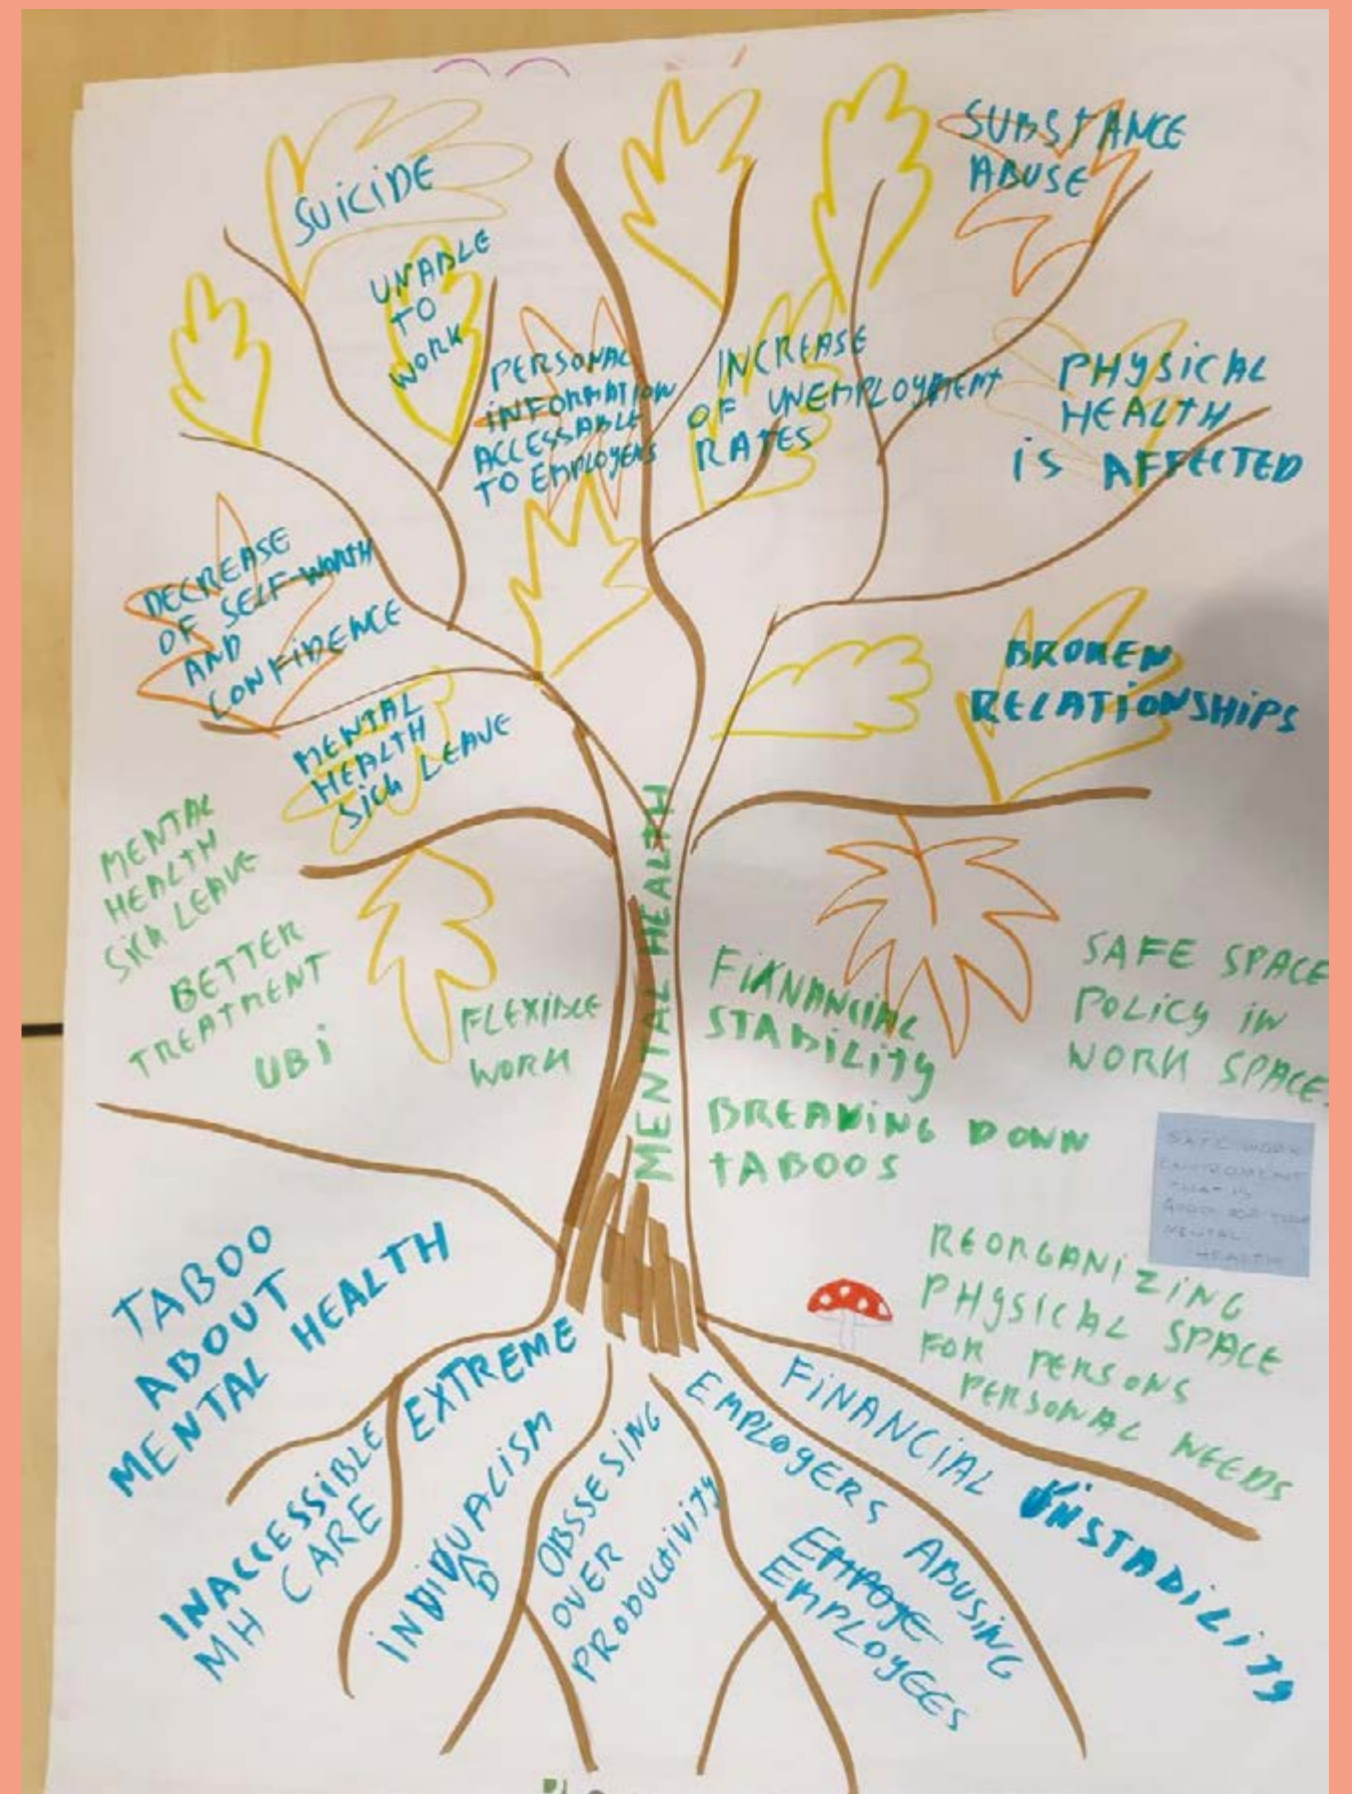 SUICIDE
UNABLE
TO
WORK
PERSONAL
INFORMATION
ACCESSABLE
TO EMPLOYERS
INCREASE
OF UNEMPLOYMENT
RATES
SUBSTANCE
ABUSE
PHYSICAL
HEALTH
IS AFFECTED
DECREASE
OF SELF-WORTH
AND
CONFIDENCE
MENTAL
HEALTH
SICK LEAVE
BROKEN
RELATIONSHIPS
MENTAL HEALTH
MENTAL
HEALTH
SICK LEAVE
BETTER
TREATMENT
UBI
FLEXIBLE
WORK
FIANANCIAL
STABILITY
BREAKING DOWN
TABOOS
SAFE SPACE
POLICY IN
WORK SPACE
SAFE WORK
ENVIROMENT
THAT IS
MENTAL
HEALTH
REORGANIZING
PHYSICAL SPACE
FOR PERSONS
PERSONAL NEEDS
TABOO
ABOUT
MENTAL HEALTH
INACCESSIBLE
MH CARE
EXTREME
INDIVDUALISM
OBSSESING
OVER
PRODUCTIVITY
EMPLOYERS ABUSING
EMPOYE
EMPLOYEES
FINANCIAL UNSTABILITY